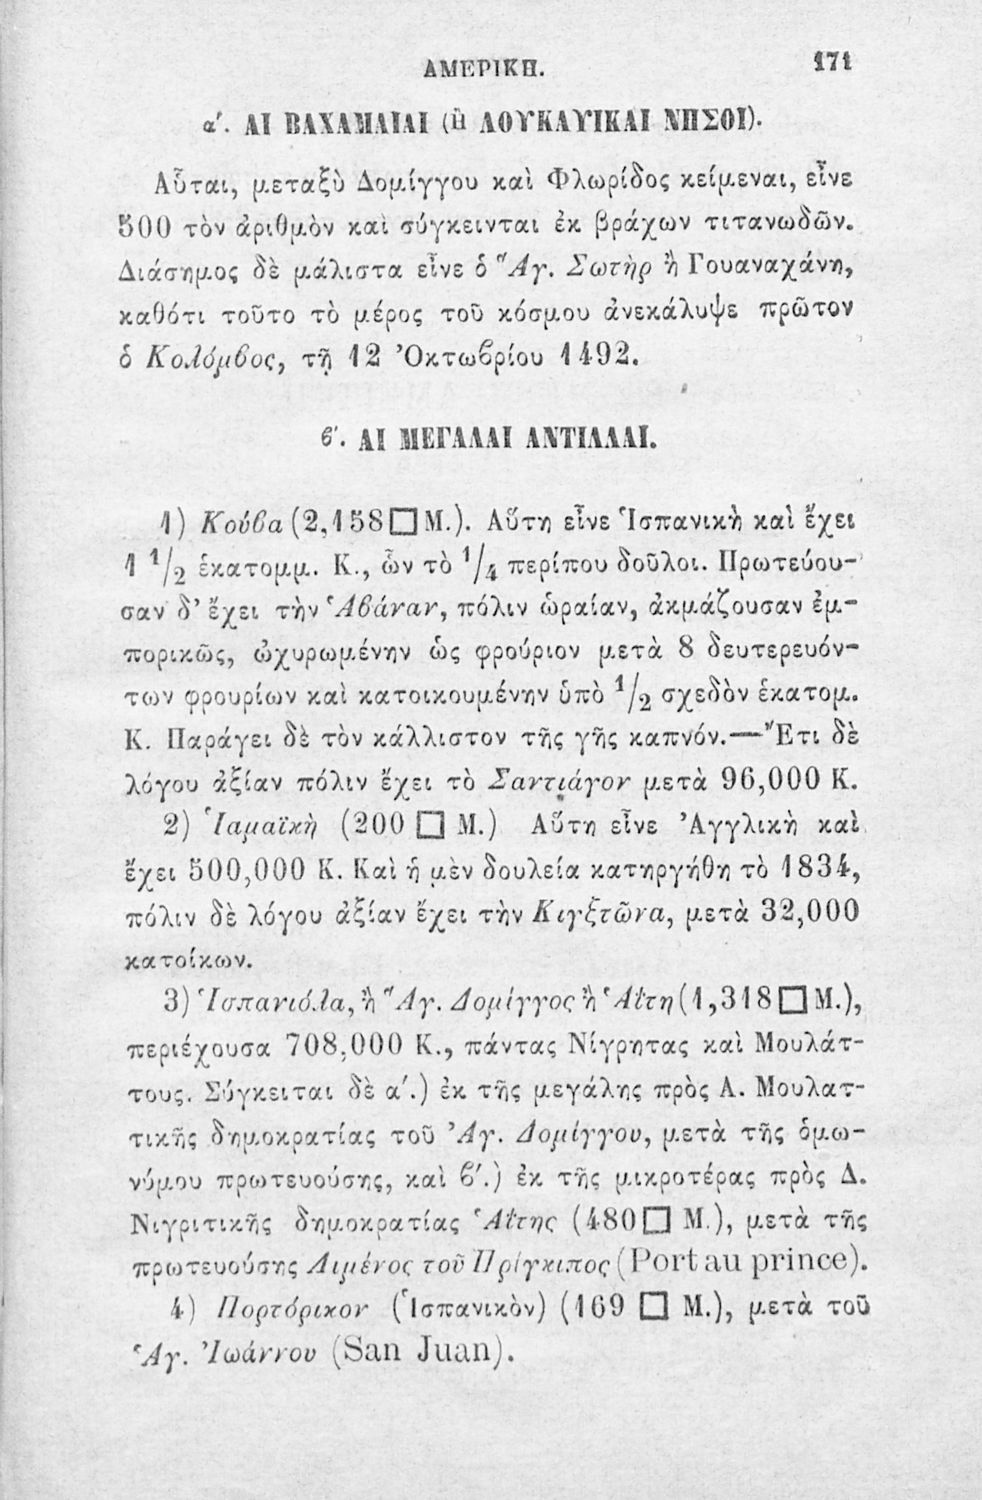 ΑΜΕΡΙΚΗ. 171
α'. ΑΙ ΒΑΧΑΜΑΙΑΙ (ἢ ΛΟΥΚΑΥΙΚΑΙ ΝΗΣΟΙ).
Αὗται, μεταξὺ Δομίγγου καὶ Φλωρίδος κείμεναι, εἶνε
500 τὸν ἀριθμὸν καὶ σύγκεινται ἐκ βράχων τιτανωδῶν.
Διάσημος δὲ μάλιστα εἶνε ὁ Ἅγ. Σωτὴρ ἢ Γουαναχάνη,
καθότι τοῦτο τὸ μέρος τοῦ κόσμου ἀνεκάλυψε πρῶτον
ὁ Κολόμβος, τῇ 12 Ὀκτωβρίου 1492.
β'. ΑΙ ΜΕΓΑΛΑΙ ΑΝΤΙΛΛΑΙ.
1) Κούβα (2,158□Μ.). Αὕτη εἶνε Ἱσπανικὴ καὶ ἔχει
1 1/2 ἑκατομμ. Κ., ὧν τὸ 1/4 περίπου δοῦλοι. Πρωτεύου-
σαν δ' ἔχει τὴν Ἁβάναν, πόλιν ὡραίαν, ἀκμάζουσαν ἐμ-
πορικῶς, ὠχυρωμένην ὡς φρούριον μετὰ 8 δευτερευόν-
των φρουρίων καὶ κατοικουμένην ὑπὸ 1/2 σχεδὸν ἑκατομ.
Κ. Παράγει δὲ τὸν κάλλιστον τῆς γῆς καπνόν.—Ἔτι δὲ
λόγου ἀξίαν πόλιν ἔχει τὸ Σαντιάγον μετὰ 96,000 Κ.
2) Ἱαμαϊκὴ (200 □ Μ.) Αὕτη εἶνε Ἀγγλικὴ καὶ
ἔχει 500,000 Κ. Καὶ ἡ μὲν δουλεία κατηργήθη τὸ 1834,
πόλιν δὲ λόγου ἀξίαν ἔχει τὴν Κιγξτῶνα, μετὰ 32,000
κατοίκων.
3) Ἱσπανιόλα, ἢ Ἅγ. Δομίγγος ἢ Ἁΐτη (1,318□Μ.),
περιέχουσα 708,000 Κ., πάντας Νίγρητας καὶ Μουλάτ-
τους. Σύγκειται δὲ α'.) ἐκ τῆς μεγάλης πρὸς Α. Μουλατ-
τικῆς δημοκρατίας τοῦ Ἁγ. Δομίγγου, μετὰ τῆς ὁμω-
νύμου πρωτευούσης, καὶ β'.) ἐκ τῆς μικροτέρας πρὸς Δ.
Νιγριτικῆς δημοκρατίας Ἁΐτης (480□ Μ.), μετὰ τῆς
πρωτευούσης Λιμένος τοῦ Πρίγκιπος (Port au prince).
4) Πορτόρικον (Ἱσπανικὸν) (169 □ Μ.), μετὰ τοῦ
Ἁγ. Ἰωάννου (San Juan).